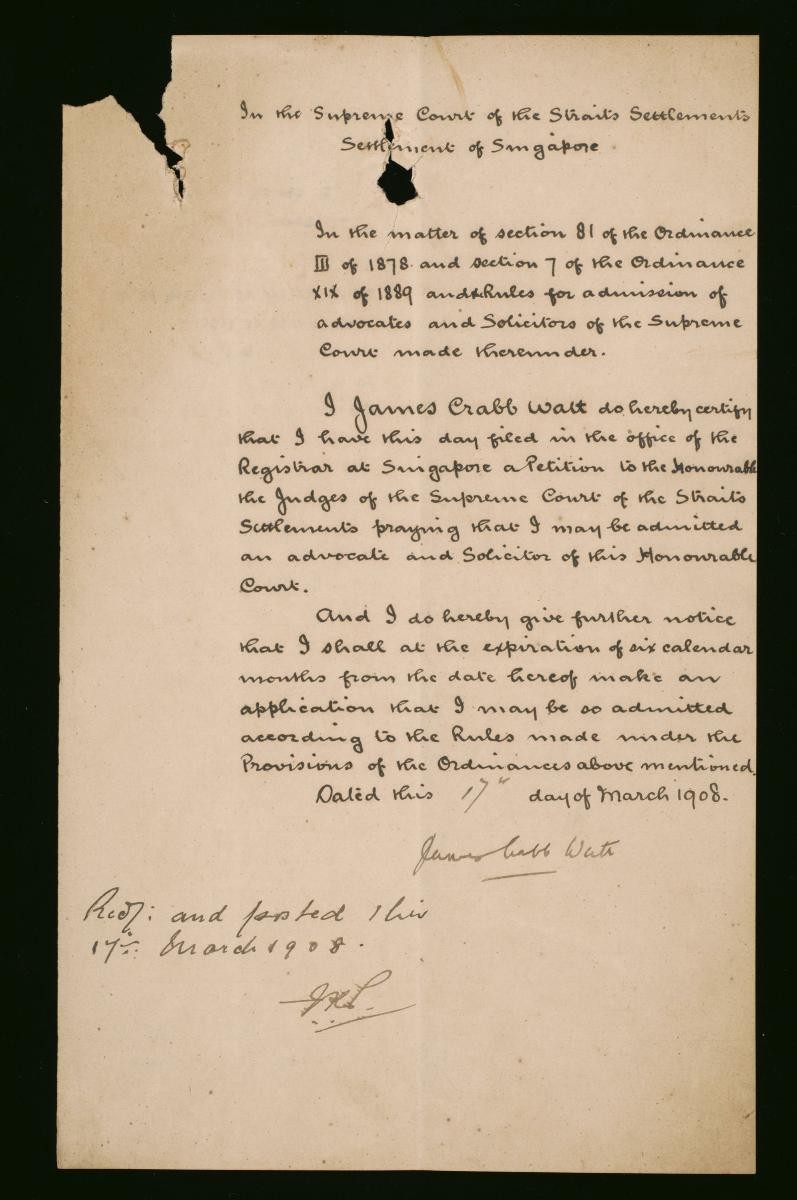 In the Supreme Court of the Straits Settlements
Settlement of Singapore
In the matter of section 81 of the Ordinance
III of 1878 and section 7 of the Ordinance
XIX of 1889 and & Rules for admission of
advocates and Solicitors of the Supreme
Court made thereunder.
I James Crabb Watt do hereby certify
that I have this day filed in the office of the
Registrar at Singapore a Petition to the Honourable
the Judges of the Supreme Court of the Straits
Settlements praying that I may be admitted
an advocate and Solicitor of this Honourable
Court.
And I do hereby give further notice
that I shall at the expiration of six calendar
months from the date hereof make an
application that I may be so admitted
according to the Rules made under the
Provisions of the Ordinances above mentioned.
Dated this 17th day of March 1908.
James Crabb Watt
Recd: and posted this
17th March 1908.